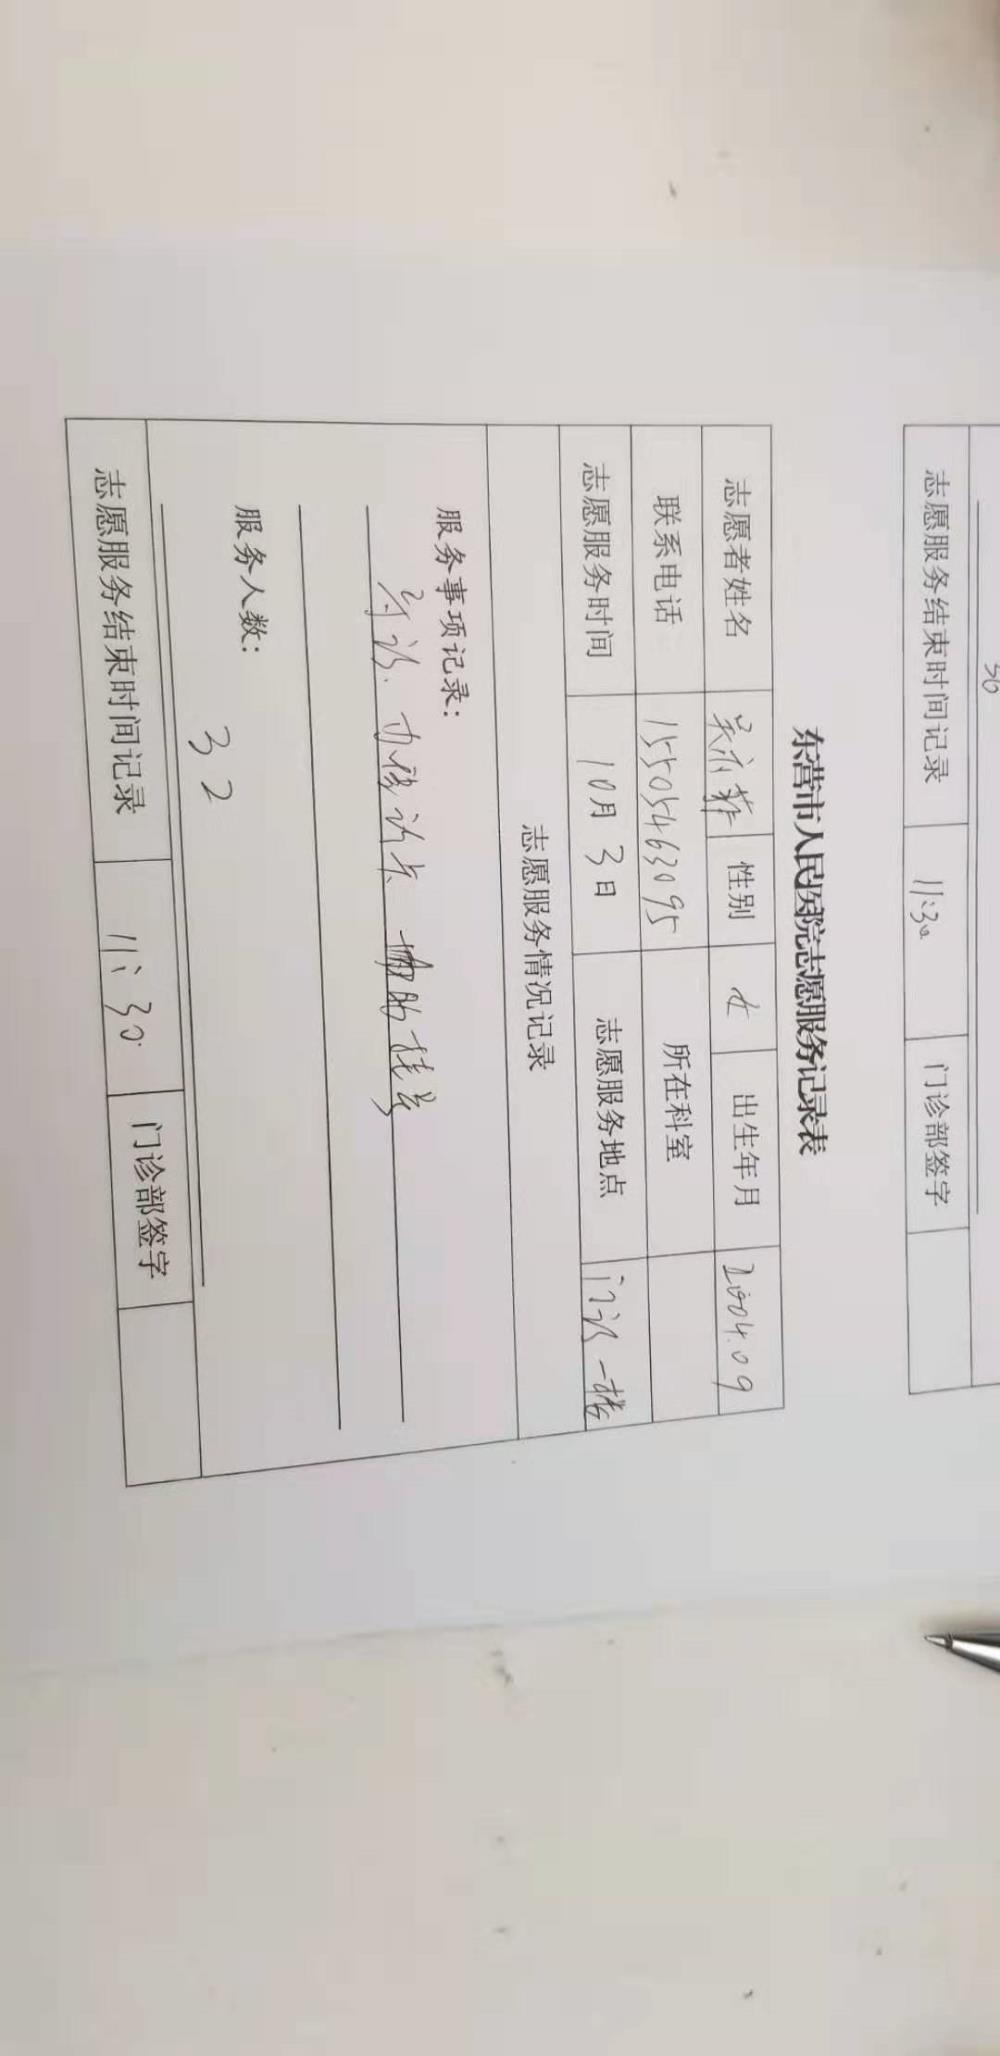 50
志愿服务结束时间记录 11:30 门诊部签字
东营市人民医院志愿服务记录表
志愿者姓名 性别 女 出生年月 2004.09
联系电话 15505463095 所在科室
志愿服务时间 10月3日 志愿服务地点 门诊一楼
志愿服务情况记录
服务事项记录：
导诊、办就诊卡 帮助挂号
服务人数：
32
志愿服务结束时间记录 11:30 门诊部签字